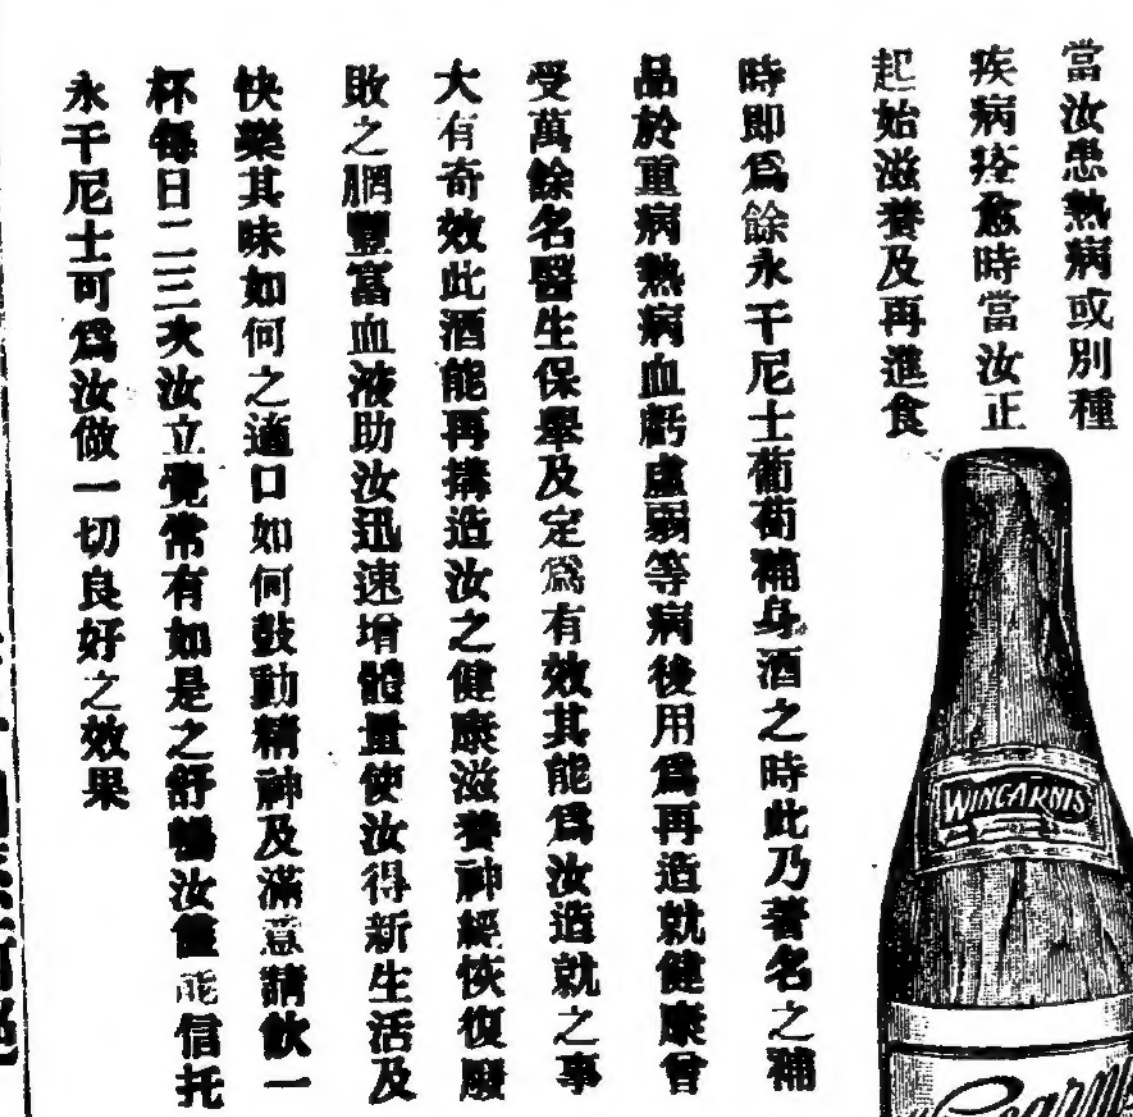 當汝患熱病或別種
疾病痊愈時當汝正
起始滋養及再進食
時即爲餘永干尼士葡萄補身酒之時此乃著名之補
品於重病熱病血虧虛弱等病後用爲再造就健康曾
受萬餘名醫生保舉及定爲有效其能爲汝造就之事
大有奇效此酒能再搆造汝之健康滋養神經恢復廢
敗之腦豐富血液助汝迅速增體量使汝得新生活及
快樂其味如何之適口如何鼓動精神及滿意請飲一
杯每日二三次汝立覺常有如是之舒暢汝僅能信托
永干尼士可爲汝做一切良好之效果
WINCARNIS